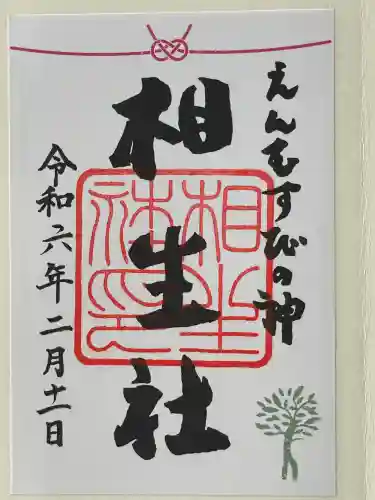 えんむすびの神
相生社
相生社印
令和六年二月十一日